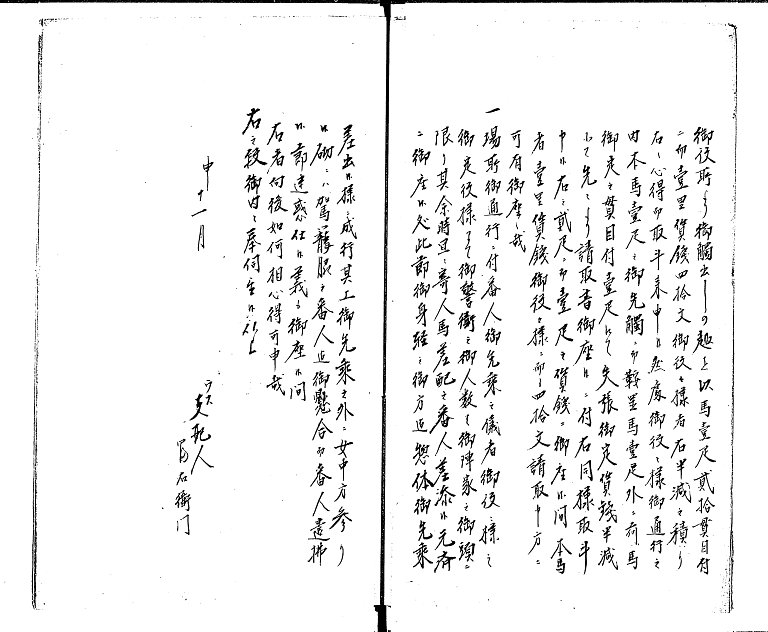 御役所ゟ御觸出しの趣を以馬壹疋貳拾貫目付
ニ而壹里賃錢四拾文御役々様者右半減之積り
右ニ心得而取斗来申候然處御役々様御通行之
内本馬壹疋と御先觸ニ而軽尻馬壹疋外ニ荷馬
御定之貫目付壹疋ニ而矢張御定賃錢半減
にて先々ゟ請取書御座候ニ付右同様取斗
申候右之貳疋ニ而壹疋之賃錢ニ御座候間本馬
者壹里賃錢御役々様ニ而も四拾文請取申方ニ
可有御座候哉
一場所御通行ニ付番人御先乘之儀者御役々様之
御定役様ニ而御警衛之御人数之御陣家之御頭ニ
限り其余時宜ニ寄人馬差配之番人差添候元済
ニ御座候处此節御身軽之御方迄惣体御先乘
差出候様ニ成行其上御先乘之外ニ女中方参り
候砌ニハ駕籠脇之番人迄御懸合而番人遣拂
候節迷惑仕候義も御座候間
右者向後如何相心得可申哉
右之段御内々奉伺上候以上
申十一月
支配人
右衛門